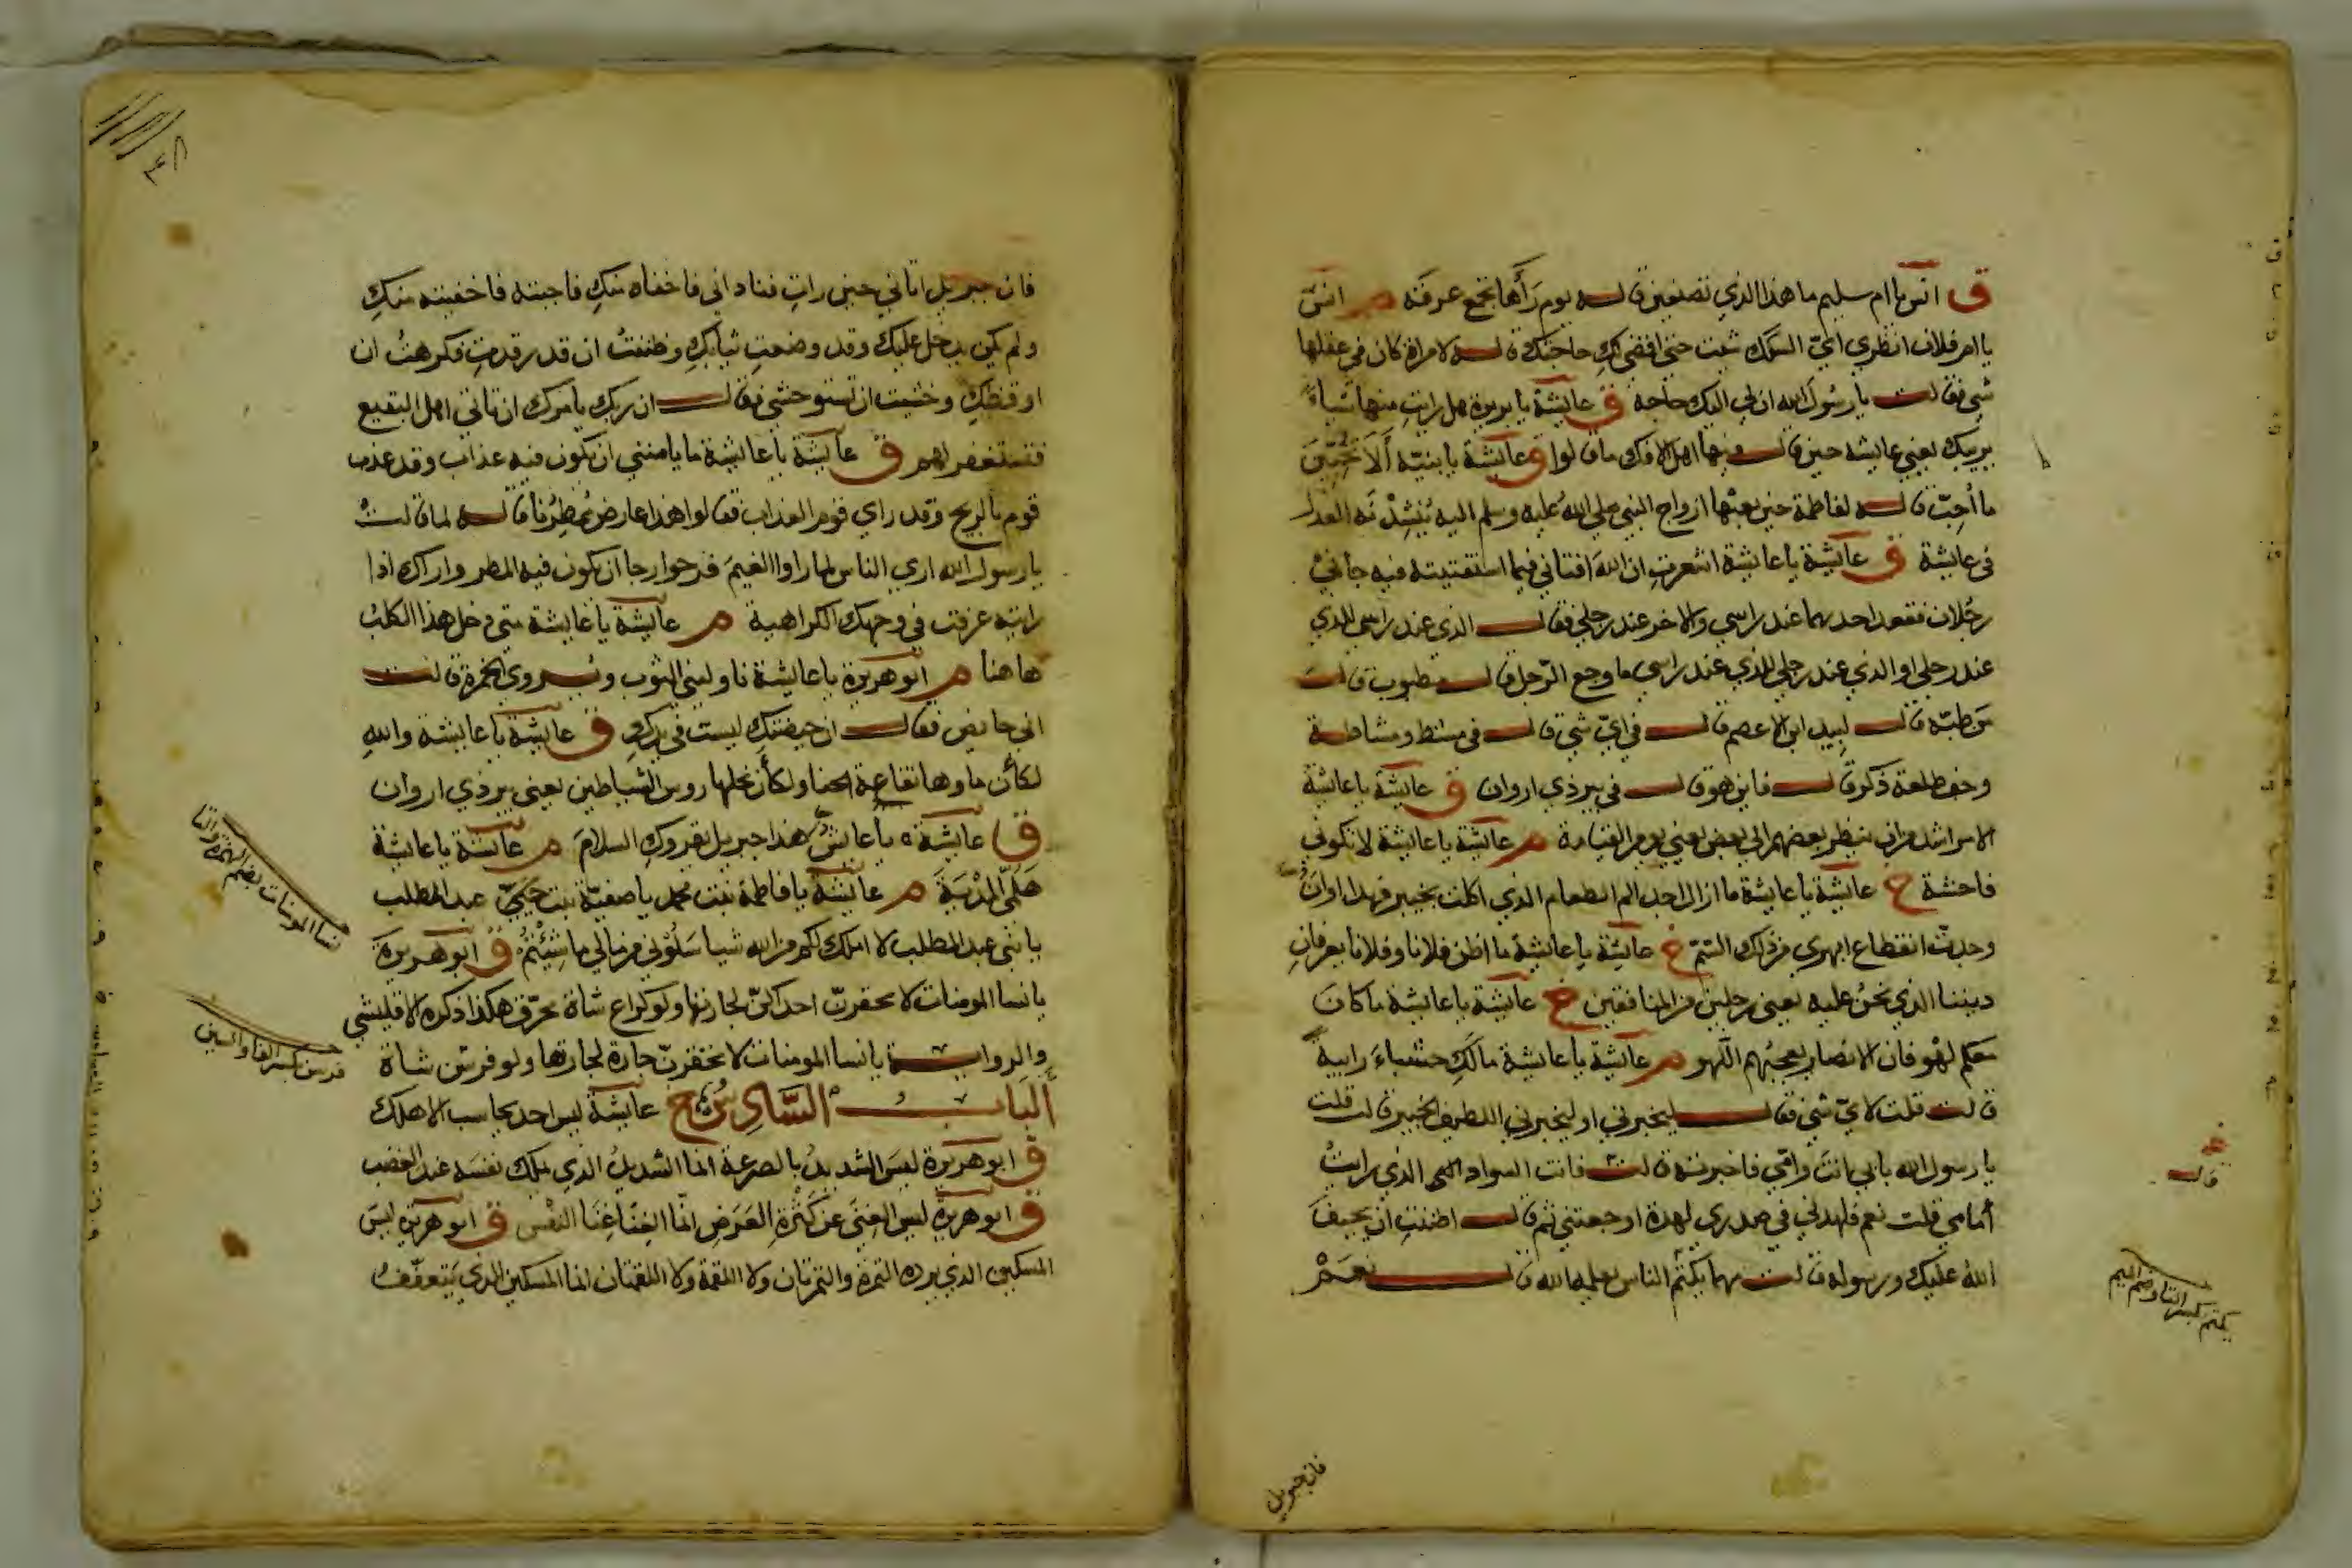 ق انس يا ام سليم ما هذا الذي تصنعين قاله يوم رأها تجمع عرقه م انس
يا ام فلان انظري ايّ السكك شئت حتى اقضي لكِ حاجتك قاله لامراة كان في عقلها
شي فقالت يا رسول الله ان لي اليك حاجة ق عايشة يا بريرة هل رايتِ منها شياءً
يريبك يعني عايشه حين قال فيها اهل الافك ما قالوا ق عايشة يا بنيّة أَلَا تحبّين
ما أُحِبّ قاله لفاطمة حين بعثها ازواج النبي صلى الله عليه وسلم اليه يُنْشِدْنَه العدل
في عايشة ق عايشة يا عايشة اشعرتِ ان الله افتاني فيما استفتيته فيه جأني
رجُلان فقعد احدهما عند راسي والاخر عند رجلي فقال الذي عند راسي للذي
عند رجلي او الذي عند رجلي للذي عند راسي ما وجع الرّجل قال مطبوب قال
مَن طبّه قال لبيد ابن الاعصم قال في ايّ شي قال في مشط ومشاطة
وجف طلعة ذكر قال فاين هو قال في بير ذي اروان ق عايشة يا عايشة
الامر اشد من ان ينظر بعضهم الى بعض يعني يوم القيامة م عايشة يا عايشة لا تكوني
فاحشة خ عايشة يا عايشة ما ازال اجد الم الطعام الذي اكلت بخيبر فهذا اوانُ
وجدتُ انقطاع ابهري من ذلك السّمّ خ عايشة يا عايشة ما اظن فلانا وفلانا يعرفانِ
ديننا الذي نحنُ عليه يعني رجلين من المنافقين خ عايشة يا عايشة ما كانَ
معكم لهْو فان الانصار يعجبُهم اللّهو م عايشة يا عايشة مالَكِ حشياءَ رابيةً
قالت قلت لا يّ شي فقال ليخبرني او ليخبرني اللطيف الخبير قالت قلت
يا رسول الله بابي انتَ وامّي فاخبرته قالت فانت السواد الذي رايتُ
أمامي قلت نعم فلهدني في صدري لهدة اوجعتني ثم قال اظننتِ ان يحيفَ
اللهُ عليك ورسوله قالت مهما يكتُم الناس يعلمه الله قال نعَمْ
قال
يكتم بكسر التا وضم الميم
فان جبريل
فان جبريل اتاني حين راتِ فناداني فاخفاه منكِ فاجبته فاخفيته منكِ
ولم يكن يدخل عليك وقد وضعتِ ثيابكِ وظننتُ ان قد رقدتِ فكرهتُ ان
اوقظكِ وخشيت ان تستوحشي فقال ان ربك يامرك ان تاتي اهل البقيع
فتستغفر لهم ق عايشة يا عايشة ما يامنني ان يكون فيه عذاب وقد عذب
قوم بالريح وقد راي قوم العذاب فقالوا هذا عارض مُمْطِرُنا قاله لما قالتْ
يا رسول الله اري الناس اذا راوا الغيمَ فرحوا رجا ان يكون فيه المطر واراك اذا
رايته عرفت في وجهك الكراهية م عايشة يا عايشة متى دخل هذا الكلبُ
هاهنا م ابو هريرة يا عايشة ناوليني الثوب ويروي الخمرة قالت
اني حايض فقال ان حيضتكِ ليست في يدكِ ق عايشة يا عايشة والله
لكأن ماوها نقاعة الحنا ولكأن نخلها روس الشياطين يعني بير ذي اروان
ق عايشة يا عايش هذا جبريل يقروكِ السلامَ م عايشة يا عايشة
هَلُمّي المدْيَةَ م عايشة يا فاطمة بنت محمد يا صفيّة بنت عبد المطلب
يا بني عبد المطلب لا املك لكم من الله شيا سَلُوْني من مالي ما شِئْتُمْ ق ابو هريرة
يا نسا المومنات لا تحقرنّ احداكنّ لجارتها ولو كراع شاة محرّق هكذا ذكره الاقليشي
والرواية يا نسا المومنات لا تحقرنّ جارة لجارتها ولو فرسن شاة
اَلبَابُ السَّادِسُ خ عايشة ليس احد يحاسب الا هلك
ق ابو هريرة ليس الشديدُ بالصرعة انما الشديدُ الذي يملك نفسَه عند الغضب
ق ابو هريرة ليس الغِنَى عن كَثْرةِ العَرَضِ انّما الغِنَا غِنَا النفْس ق ابو هريرة ليسَ
المسكين الذي يرده التمرة والتمرتان ولا اللقمة ولا اللقمتان انما المسكين الذي يَتعفّفُ
نسا المومنات بضم الهمزة والتا
فرسن بكسر الفا والسين